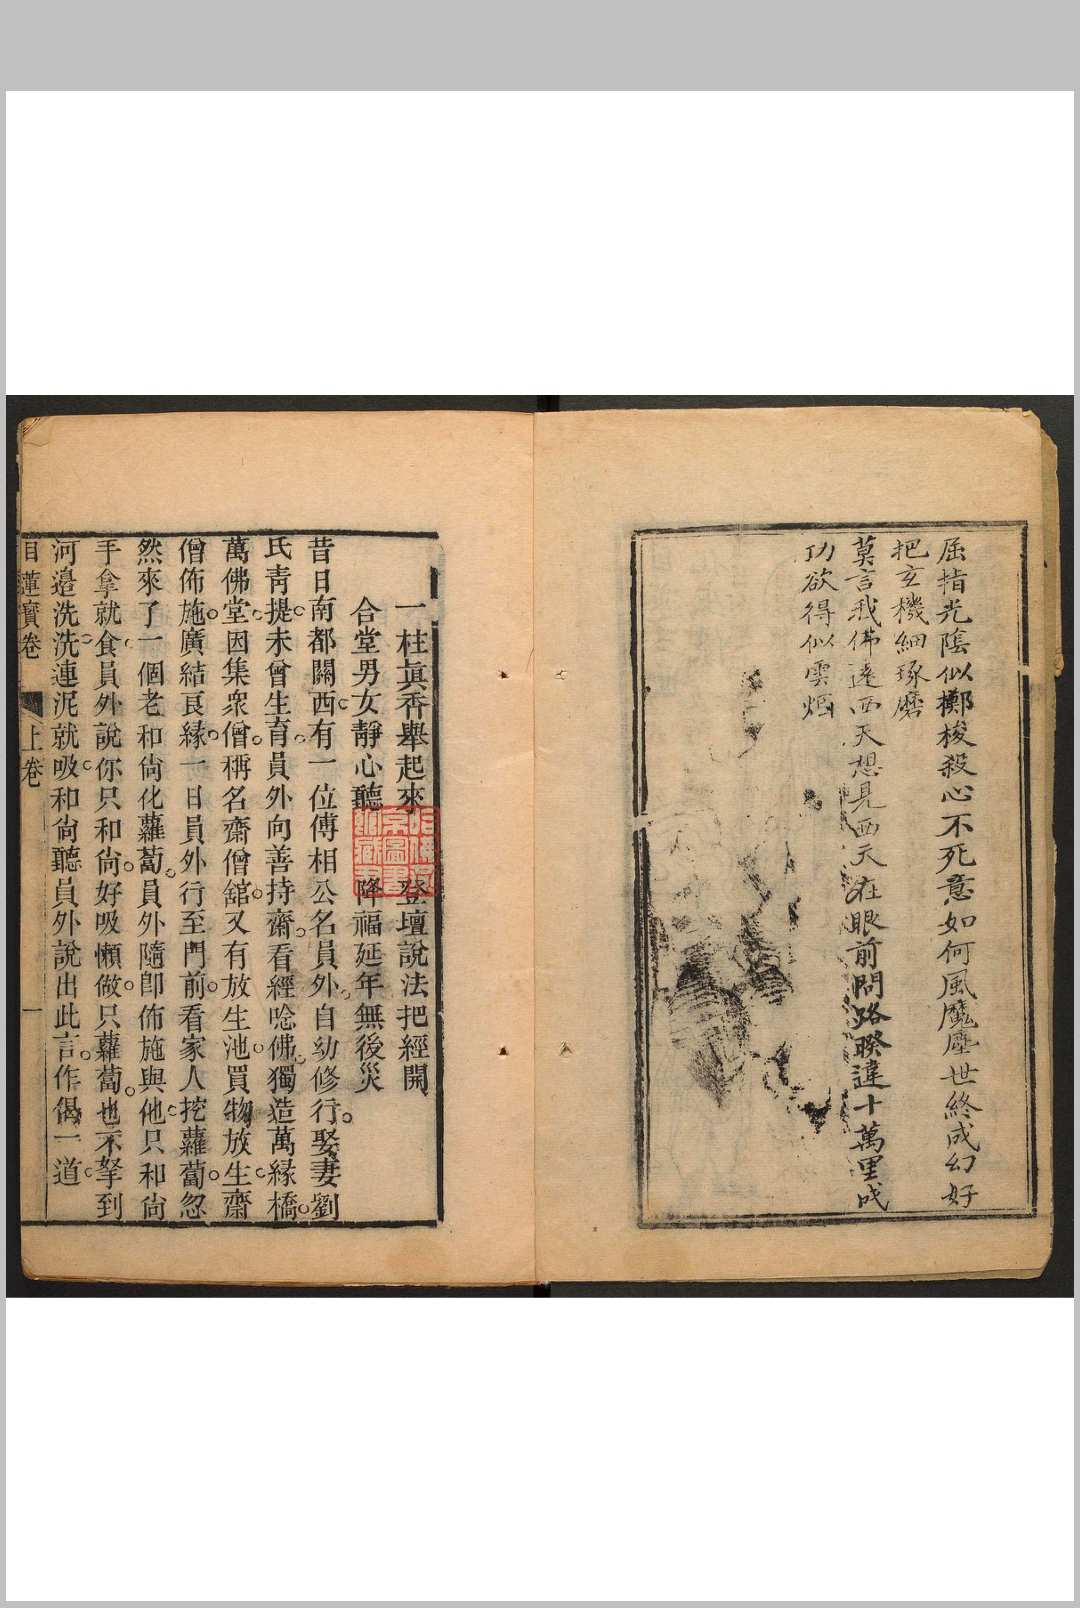 屈指光陰似擲梭殺心不死意如何風魔塵世終成幻好
把玄機細琢磨
莫言我佛遠西天想見西天在眼前問路睽違十萬里成
功欲得似雲烟
一柱真香舉起來 登壇說法把經開
合堂男女靜心聽 降福延年無後災
昔日南都關西有一位傅相公名員外自幼修行娶妻劉
氏青提未曾生育員外向善持齋看經唸佛獨造萬緣橋
萬佛堂因集衆僧稱名齋僧舘又有放生池買物放生齋
僧佈施廣結良緣一日員外行至門前看家人挖蘿蔔忽
然來了一個老和尙化蘿蔔員外隨卽佈施與他只和尙
手拿就食員外說你只和尙好吸懶做只蘿蔔也不拏到
河邉洗洗連泥就吸和尙聽員外說出此言作偈一道
目蓮寳卷 上卷 一